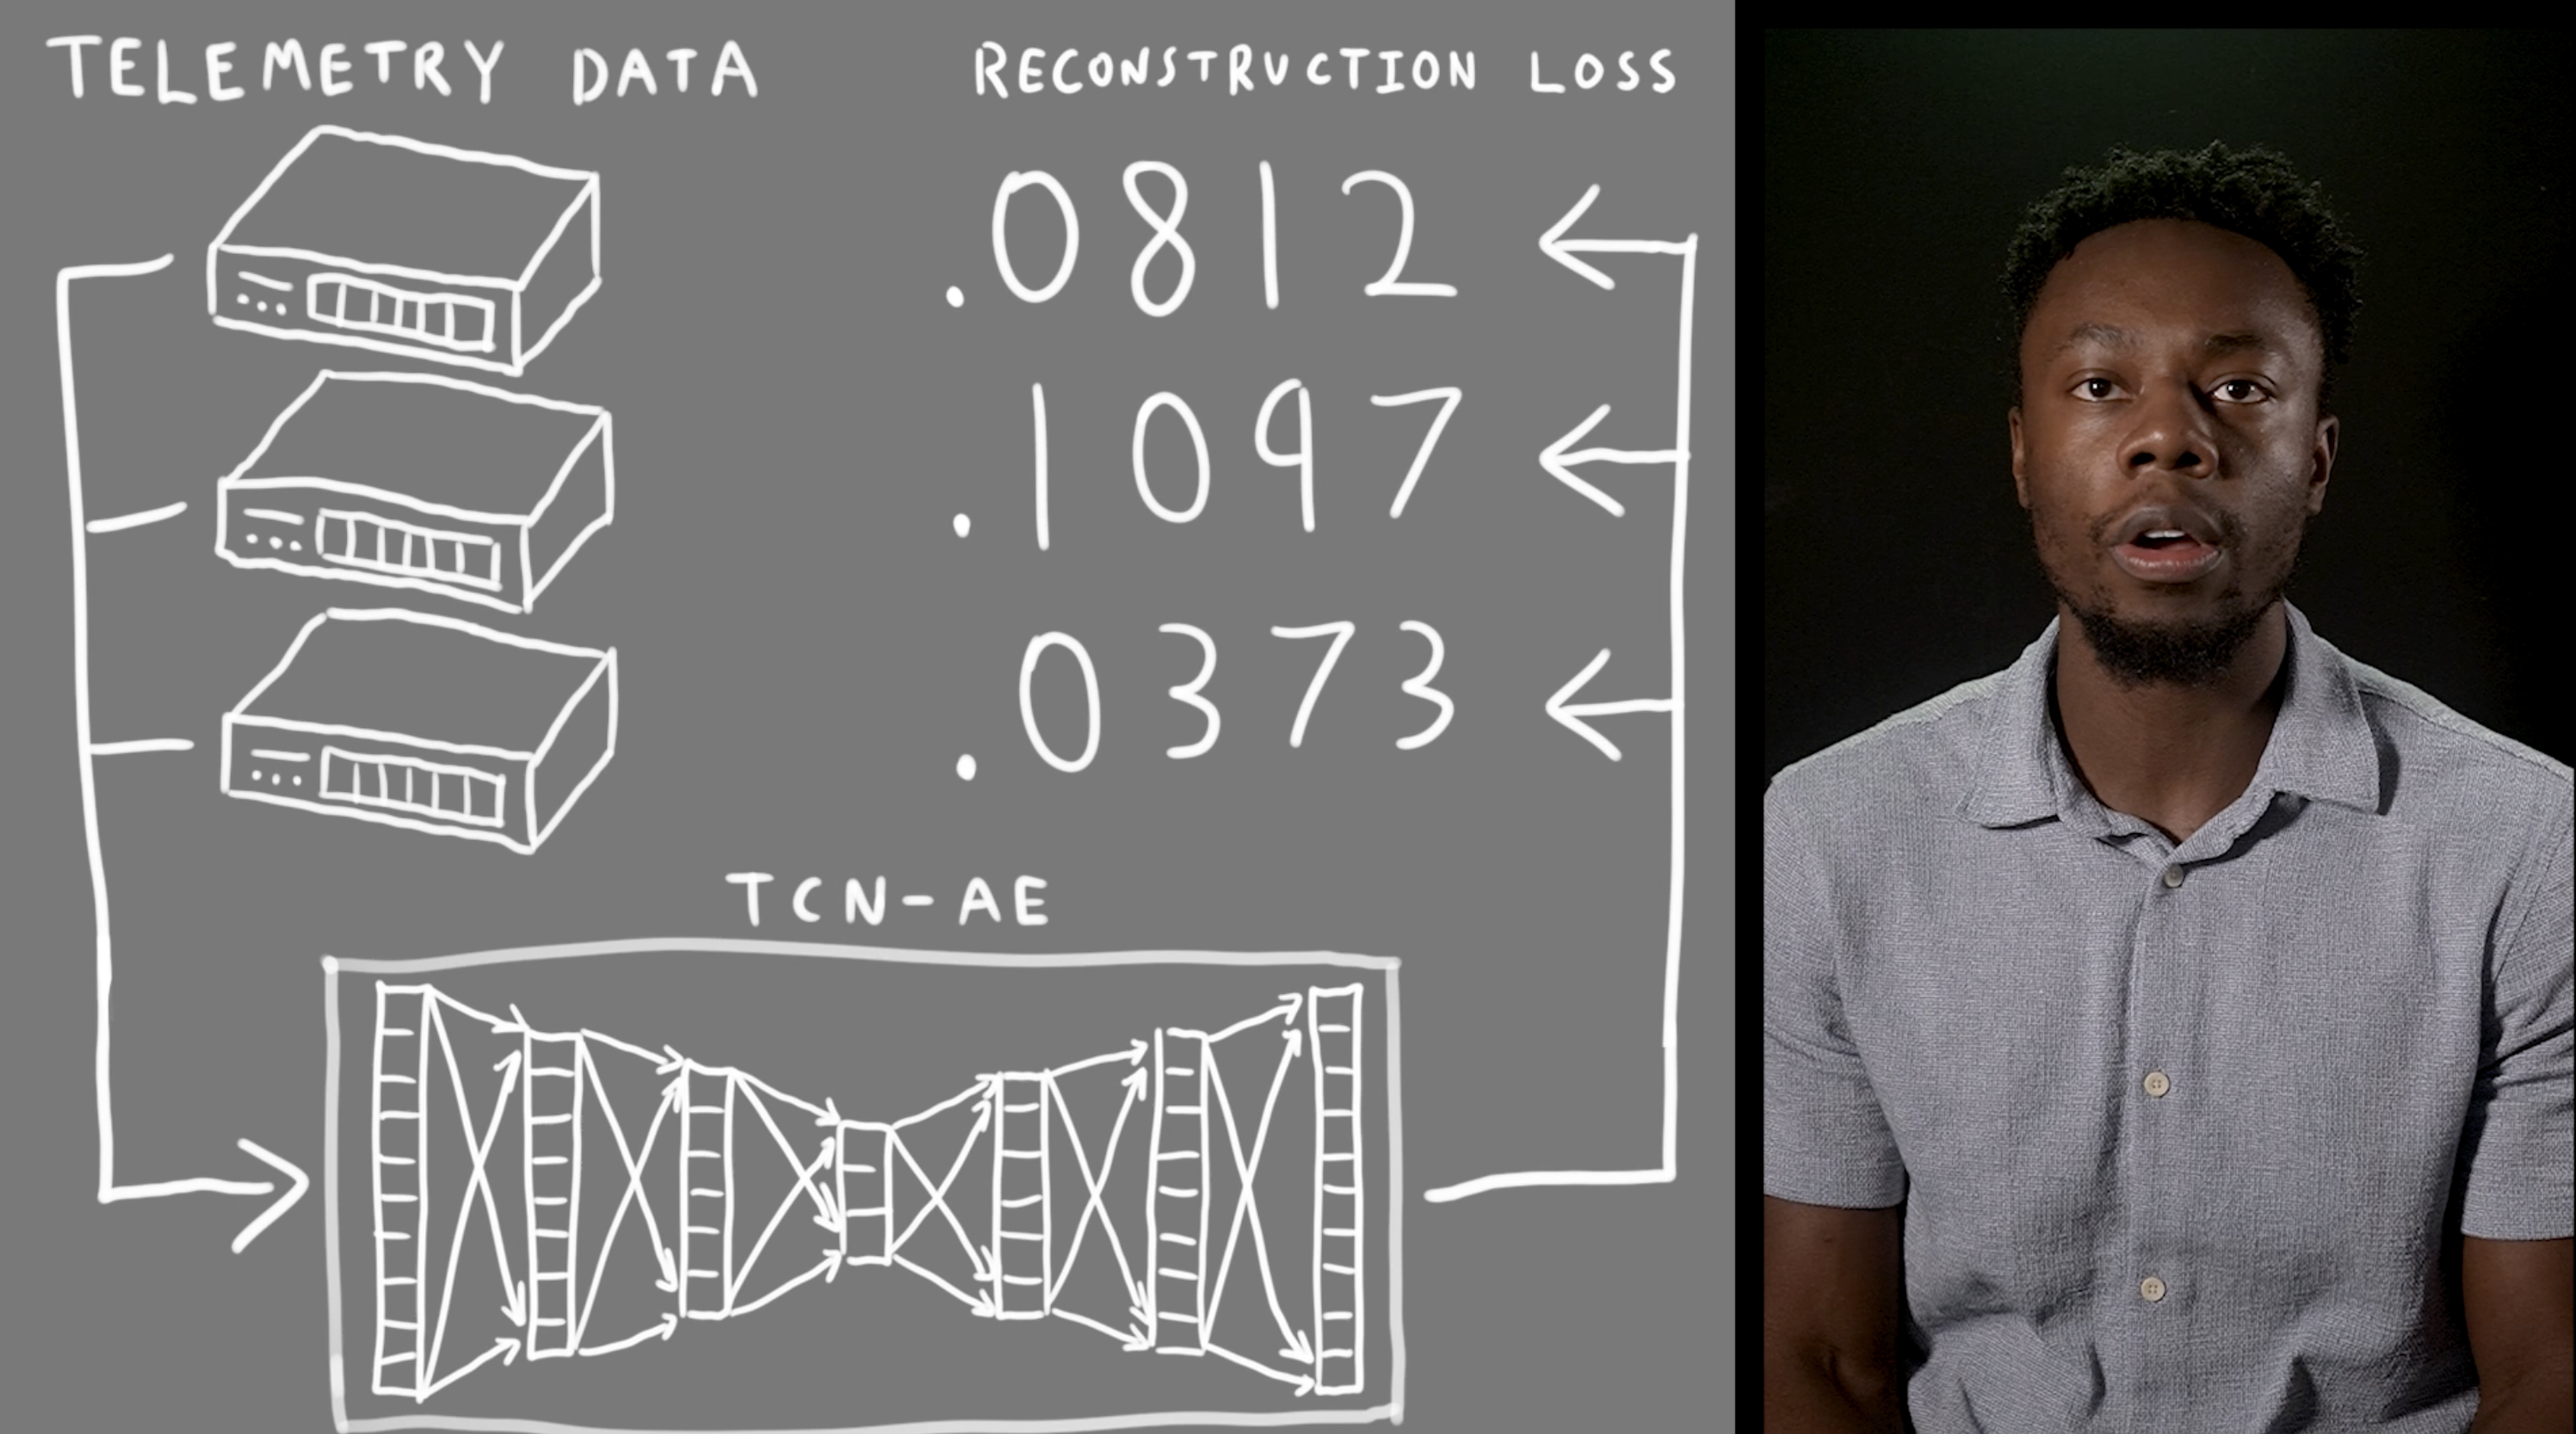 TELEMETRY DATA
RECONSTRUCTION LOSS
.0812
.1097
.0373
TCN-AE